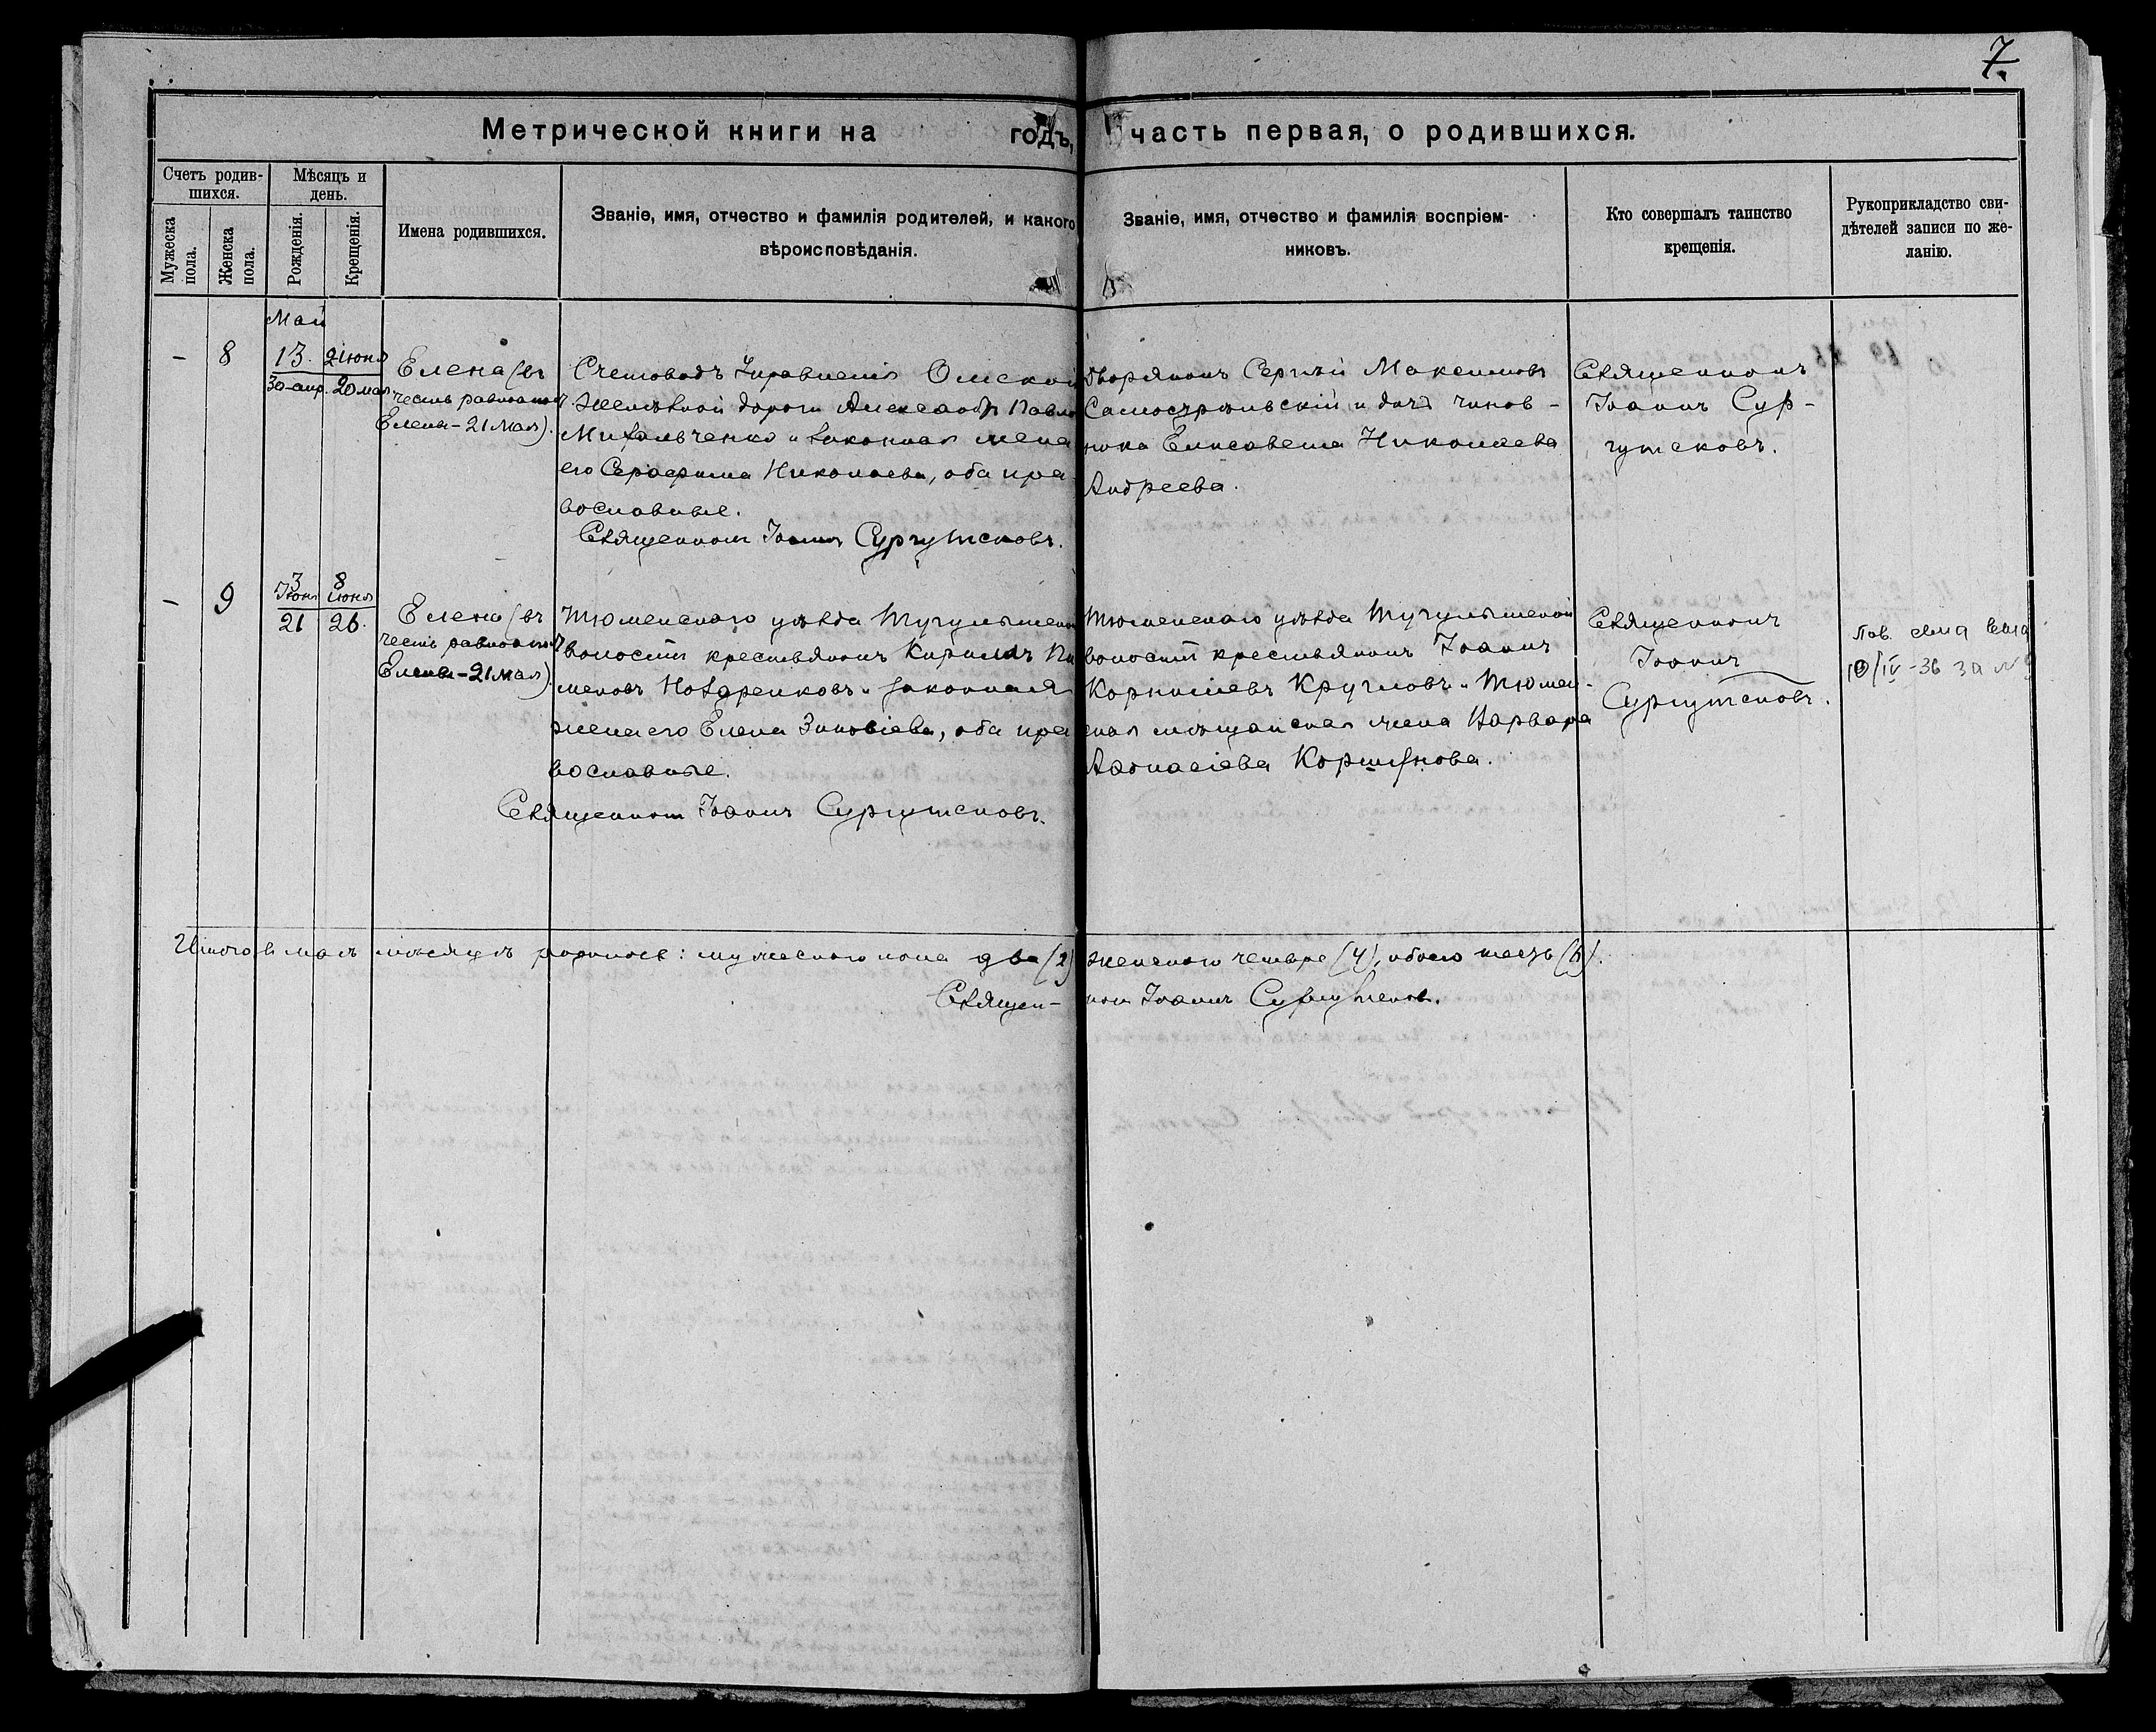 7.
Метрической книги на годъ, часть первая, о родившихся.
Счетъ родив-
шихся.
Мужеска
пола.
Женска
пола.
Мѣсяцъ и
день.
Рожденія.
Крещенія.
Имена родившихся.
Званіе, имя, отчество и фамилія родителей, и какого
вѣроисповѣданія.
Званіе, имя, отчество и фамилія воспріем-
никовъ.
Кто совершалъ таинство
крещенія.
Рукоприкладство сви-
дѣтелей записи по же-
ланію.
Май
- 8
13. 2 июня
30 апр. 20 мая
Елена (въ
честь равноап.
Елены - 21 мая).
Счетоводъ Управленія Омской
желѣзной дороги Александръ Павло
Михальченко и законная жена
его Серафима Николаева, оба пра
вославные.
Священникъ Іоаннъ Сургутсковъ.
Дворянинъ Сергѣй Максимовъ
и дочь чинов-
ника Елисавета Николаева
Андреева.
Священникъ
Іоаннъ Сур-
гутсковъ.
- 9
3 8
Іюня июня
21 26.
Елена (въ
честь равноап.
Елены - 21 мая).
Тюменскаго уѣзда Тугулымской
волости крестьянинъ Кириллъ Пи
меновъ Ноздренковъ и законная
жена его Елена Зиновіева, оба пра
вославные.
Священникъ Іоаннъ Сургутсковъ.
Тюменскаго уѣзда Тугулымской
волости крестьянинъ Іоаннъ
Корниліевъ Кругловъ и Тюмен-
ская мѣщанская жена Варвара
Аѳанасіева Коршунова.
Священникъ
Іоаннъ
Сургутсковъ.
Пов.
10/IV-36 за № 9
Итого в маѣ мѣсяцѣ родилось: мужескаго пола два (2) женскаго четыре (4), обоего шесть (6).
Священ- никъ Іоаннъ Сургутсковъ.